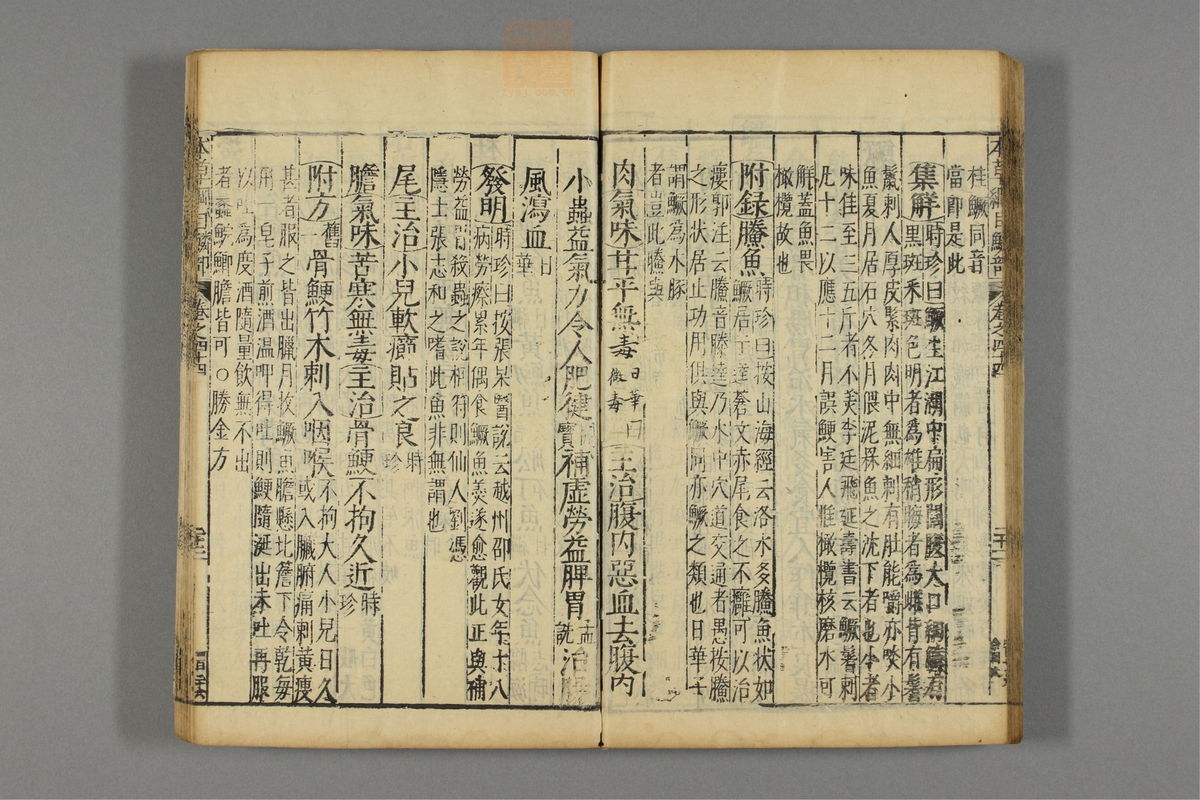 桂鱖同音
當即是此
集解時珍曰鱖生江湖中扁形闊腹大口細鱗有
黑斑釆斑色明者為雄稍晦者為雌皆有鬐
鬣刺人厚皮緊肉肉中無細刺有肚能嚼亦啖小
魚夏月居石穴冬月偎泥槑魚之沈下者也小者
味佳至三五斤者不美李廷飛延壽書云鱖鬐刺
凡十二以應十二月誤鯁害人惟橄欖核磨水可
解蓋魚畏
橄欖故也
附錄䲢魚時珍曰按山海經云洛水多䲢魚狀如
鱖居于逵蒼文赤尾食之不癰可以治
瘻郭注云䲢音滕逵乃水中穴道交通者愚按䲢
之形狀居止功用俱與鱖同亦鱖之類也日華子
謂鱖為水豚
者豈此䲢與
肉氣味甘平無毒日華曰
微毒
主治腹內惡血去腹內
小蟲益氣力令人肥健開寶補虛勞益脾胃孟
詵治腸
風瀉血日
華
發明時珍曰按張杲醫說云越州邵氏女年十八
病勞瘵累年偶食鱖魚羹遂愈觀此正與補
勞益胃殺蟲之說相符則仙人劉憑
隱士張志和之嗜此魚非無謂也
尾主治小兒軟癤貼之良時
珍
膽氣味苦寒無毒主治骨鯁不拘久近時
珍
附方舊一骨鯁竹木刺入咽喉不拘大人小兒日久
或入臟腑痛刺黃瘦
甚者服之皆出臘月收鱖魚膽懸北簷下令乾每
用一皂子煎酒温呷得吐則鯁隨涎出未吐再服
以吐為度酒隨量飲無不出
者蠡鯇鯽膽皆可○勝金方
本草綱目鱗部
卷之四十四